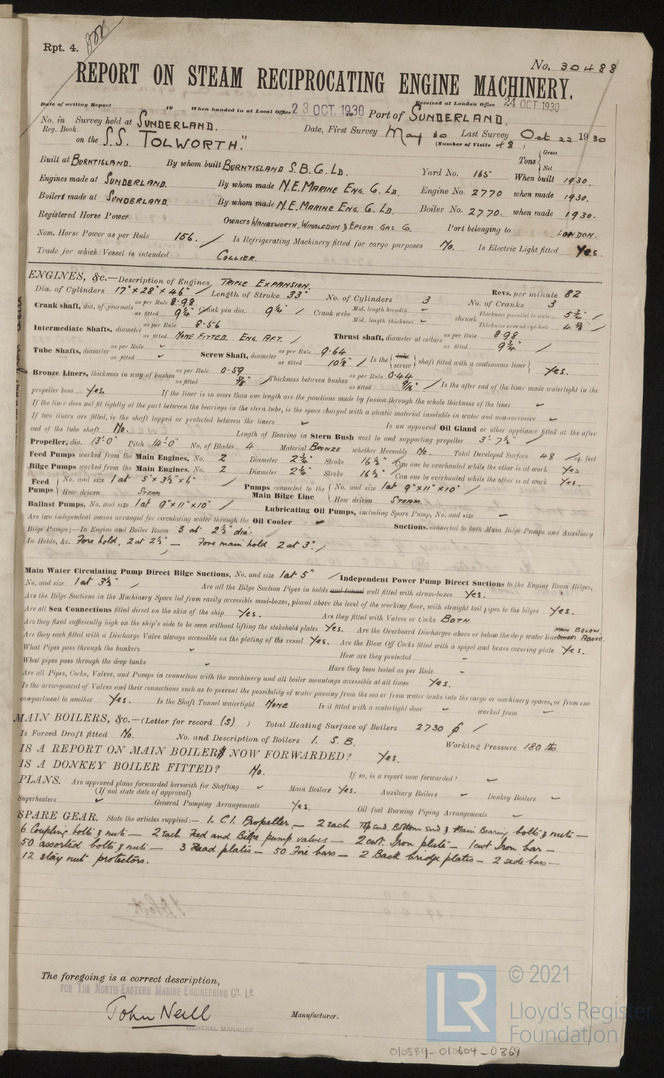 Rpt. 4.
No. 30488
REPORT ON STEAM RECIPROCATING ENGINE MACHINERY.
Date of writing Report 19 When handed in at Local Office 23 OCT. 1930 Port of SUNDERLAND. Received at London Office 24 OCT 1930
No. in Survey held at SUNDERLAND. Date, First Survey May Last Survey Oct 22 1930
Reg. Book. (Number of Visits 48)
on the S.S. "TOLWORTH." Tons Gross Net
Built at BURNTISLAND. By whom built BURNTISLAND S.B. Co. LD. Yard No. 165 When built 1930.
Engines made at SUNDERLAND. By whom made N.E. MARINE ENG. Co. LD. Engine No. 2770 when made 1930.
Boilers made at SUNDERLAND. By whom made N.E. MARINE ENG. Co. LD. Boiler No. 2770. when made 1930.
Registered Horse Power Owners WANDSWORTH, WIMBLEDON & EPSOM GAS Co. Port belonging to LONDON.
Nom. Horse Power as per Rule 156. Is Refrigerating Machinery fitted for cargo purposes No. Is Electric Light fitted Yes.
Trade for which Vessel is intended COLLIER.
ENGINES, &c.—Description of Engines, TRIPLE EXPANSION. Revs. per minute 82
Dia. of Cylinders 17" x 28" x 46" Length of Stroke 33" No. of Cylinders 3 No. of Cranks 3
Crank shaft, dia. of journals as per Rule 8.98 as fitted 9¼" Crank pin dia. 9¼" Crank webs Mid. length breadth Mid. length thickness shrunk Thickness parallel to axis 5¾" Thickness around eye-hole
Intermediate Shafts, diameter as per Rule 8.56 as fitted NONE FITTED. ENG. AFT. Thrust shaft, diameter at collars as per Rule 8.98 as fitted 9¼"
Tube Shafts, diameter as per Rule as fitted Screw Shaft, diameter as per Rule 9.64 as fitted 10½" Is the tube screw shaft fitted with a continuous liner Yes.
Bronze Liners, thickness in way of bushes as per Rule 0.59 as fitted Thickness between bushes as per Rule 0.44 as fitted Is the after end of the liner made watertight in the
propeller boss Yes. If the liner is in more than one length are the junctions made by fusion through the whole thickness of the liner
If the liner does not fit tightly at the part between the bearings in the stern tube, is the space charged with a plastic material insoluble in water and non-corrosive
If two liners are fitted, is the shaft lapped or protected between the liners Is an approved Oil Gland or other appliance fitted at the after
end of the tube shaft No. Length of Bearing in Stern Bush next to and supporting propeller 3' 7½"
Propeller, dia. 13'.0" Pitch 14'.0" No. of Blades 4 Material BRONZE whether Moveable No. Total Developed Surface 48 sq. feet
Feed Pumps worked from the Main Engines, No. 2 Diameter 2½" Stroke 16½" Can one be overhauled while the other is at work Yes
Bilge Pumps worked from the Main Engines, No. 2 Diameter 2½" Stroke 16½" Can one be overhauled while the other is at work Yes.
Feed Pumps No. and size 1 at 5" x 3½" x 6" How driven Steam Pumps connected to the Main Bilge Line No. and size 1 at 9" x 11" x 10" How driven Steam.
Ballast Pumps, No. and size 1 at 9" x 11" x 10" Lubricating Oil Pumps, including Spare Pump, No. and size
Are two independent means arranged for circulating water through the Oil Cooler Suctions, connected to both Main Bilge Pumps and Auxiliary
Bilge Pumps;—In Engine and Boiler Room 3 at 2½" dia.
In Holds, &c. Fore hold, 2 at 2½" — Fore main hold 2 at 3".
Main Water Circulating Pump Direct Bilge Suctions, No. and size 1 at 5" Independent Power Pump Direct Suctions to the Engine Room Bilges,
No. and size 1 at 3½" Are all the Bilge Suction Pipes in holds and tunnel well fitted with strum-boxes Yes.
Are the Bilge Suctions in the Machinery Space led from easily accessible mud-boxes, placed above the level of the working floor, with straight tail pipes to the bilges Yes.
Are all Sea Connections fitted direct on the skin of the ship Yes. Are they fitted with Valves or Cocks BOTH
Are they fixed sufficiently high on the ship's side to be seen without lifting the stokehold plates Yes. Are the Overboard Discharges above or below the deep water line MAIN BELOW OTHERS ABOVE.
Are they each fitted with a Discharge Valve always accessible on the plating of the vessel Yes. Are the Blow Off Cocks fitted with a spigot and brass covering plate Yes.
What Pipes pass through the bunkers How are they protected
What pipes pass through the deep tanks Have they been tested as per Rule
Are all Pipes, Cocks, Valves, and Pumps in connection with the machinery and all boiler mountings accessible at all times Yes.
Is the arrangement of Valves and their connections such as to prevent the possibility of water passing from the sea or from water tanks into the cargo or machinery spaces, or from one
compartment to another Yes. Is the Shaft Tunnel watertight NONE Is it fitted with a watertight door worked from
MAIN BOILERS, &c.—(Letter for record (S)) Total Heating Surface of Boilers 2730
Is Forced Draft fitted No. No. and Description of Boilers 1. S.B. Working Pressure 180 lbs.
IS A REPORT ON MAIN BOILERS NOW FORWARDED? Yes.
IS A DONKEY BOILER FITTED? No. If so, is a report now forwarded?
PLANS. Are approved plans forwarded herewith for Shafting Main Boilers Yes. Auxiliary Boilers Donkey Boilers
(If not state date of approval)
Superheaters General Pumping Arrangements Yes. Oil fuel Burning Piping Arrangements
SPARE GEAR. State the articles supplied:— 1. C.I. Propeller — 2 each Top end, Bottom end & Main Bearing bolts & nuts —
6 Coupling bolts & nuts — 2 each Feed and Bilge pump valves — 2 cwt. Iron plate — 1 cwt. Iron bar —
50 assorted bolts & nuts — 3 Dead plates — 50 Fire bars — 2 Back bridge plates — 2 side bars —
12 stay nut protectors.
The foregoing is a correct description,
FOR THE NORTH EASTERN MARINE ENGINEERING Co. Ld.
John Neill Manufacturer.
GENERAL MANAGER
© 2021
LR Lloyd's Register
Foundation
010589-010604-0369